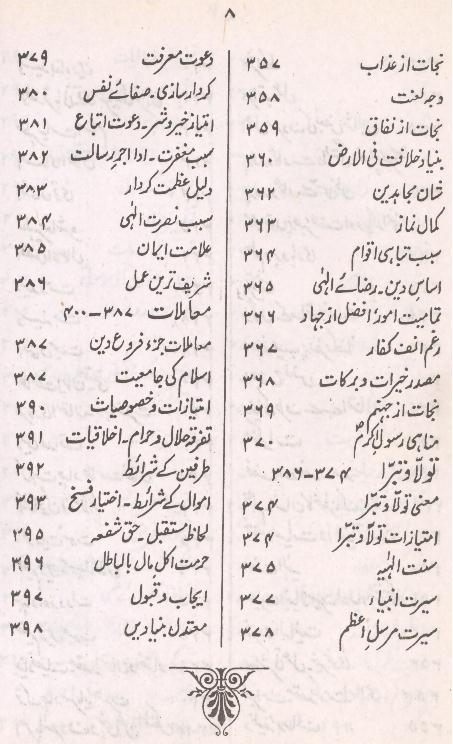 ۸
نجات از عذاب ۳۵۷
وجہ لعنت ۳۵۸
نجات از نفاق ۳۵۹
بنیاد خلافت فی الارض ۳۶۰
شان مجاہدین ۳۶۲
کمال نماز ۳۶۳
سبب تباہی اقوام ۳۶۴
اساسِ دین۔ رضائے الٰہی ۳۶۵
تمامیت امور؛ افضل از جہاد ۳۶۶
رغم انف کفار ۳۶۷
مصدر خیرات و برکات ۳۶۸
نجات از جہنم ۳۶۹
مناہی رسول اکرمؐ ۳۷۰
تولّا و تبرّا ۳۷۴-۳۸۶
معنی تولّا و تبرّا ۳۷۴
امتیازات تولّا و تبرّا ۳۷۴
سنت الٰہیہ ۳۷۵
سیرت انبیاء ۳۷۷
سیرت مرسلِ اعظم ۳۷۸
دعوت معرفت ۳۷۹
کردار سازی۔ صفائے نفس ۳۸۰
امتیاز خیر و شر۔ دعوت اتباع ۳۸۱
سبب مغفرت۔ ادا اجر رسالت ۳۸۲
دلیل عظمت کردار ۳۸۳
سبب نصرت الٰہی ۳۸۴
علامت ایمان ۳۸۵
شریف ترین عمل ۳۸۶
معاملات ۳۸۷-۴۰۰
معاملات جزء فروع دین ۳۸۷
اسلام کی جامعیت ۳۸۷
امتیازات و خصوصیات ۳۹۰
تفرقہ حلال و حرام۔ اخلاقیات ۳۹۱
طرفین کے شرائط ۳۹۲
اموال کے شرائط۔ اختیار فسخ ۳۹۳
لحاظ مستقبل۔ حق شفعہ ۳۹۵
حرمت اکل مال بالباطل ۳۹۶
ایجاب و قبول ۳۹۷
معتدل بنیادیں ۳۹۸